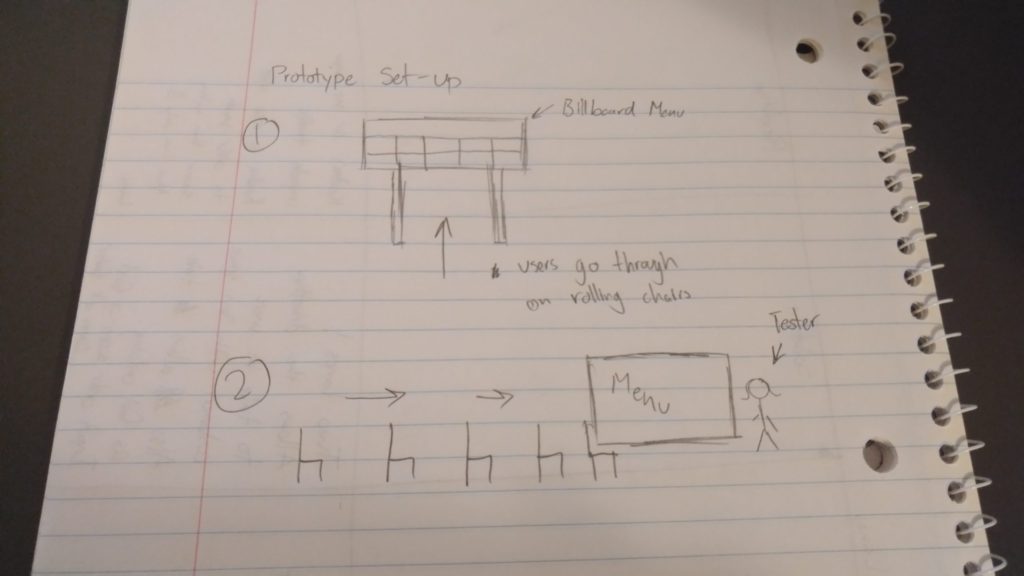 Prototype Set-up
Billboard Menu
1
* users go through
on rolling chairs
Tester
2
Menu